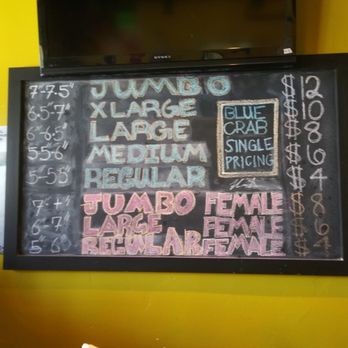 7-7.5" JUMBO $12
6.5-7" XLARGE $10
6-6.5" LARGE $8
5.5-6" MEDIUM $6
5-5.5" REGULAR $4
BLUE
CRAB
SINGLE
PRICING
7"+ JUMBO FEMALE $8
6-7" LARGE FEMALE $6
5"-6" REGULAR FEMALE $4